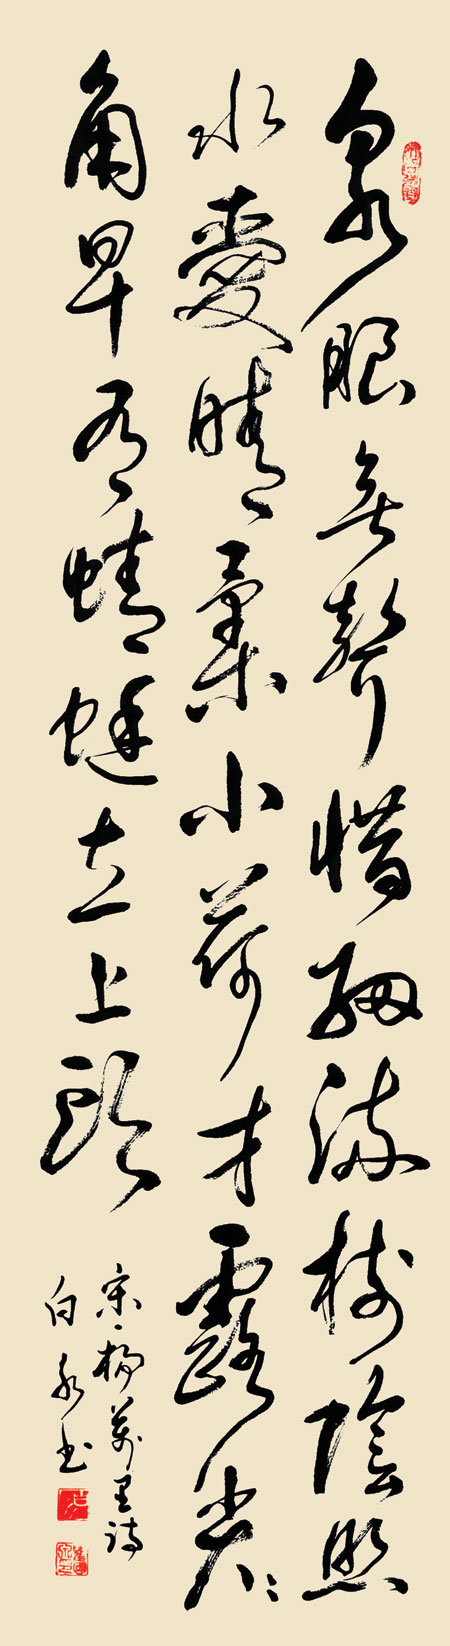 泉眼無聲惜細流樹陰照
水愛晴柔小荷才露尖々
角早有蜻蜓立上頭
宋·楊萬里詩
白书